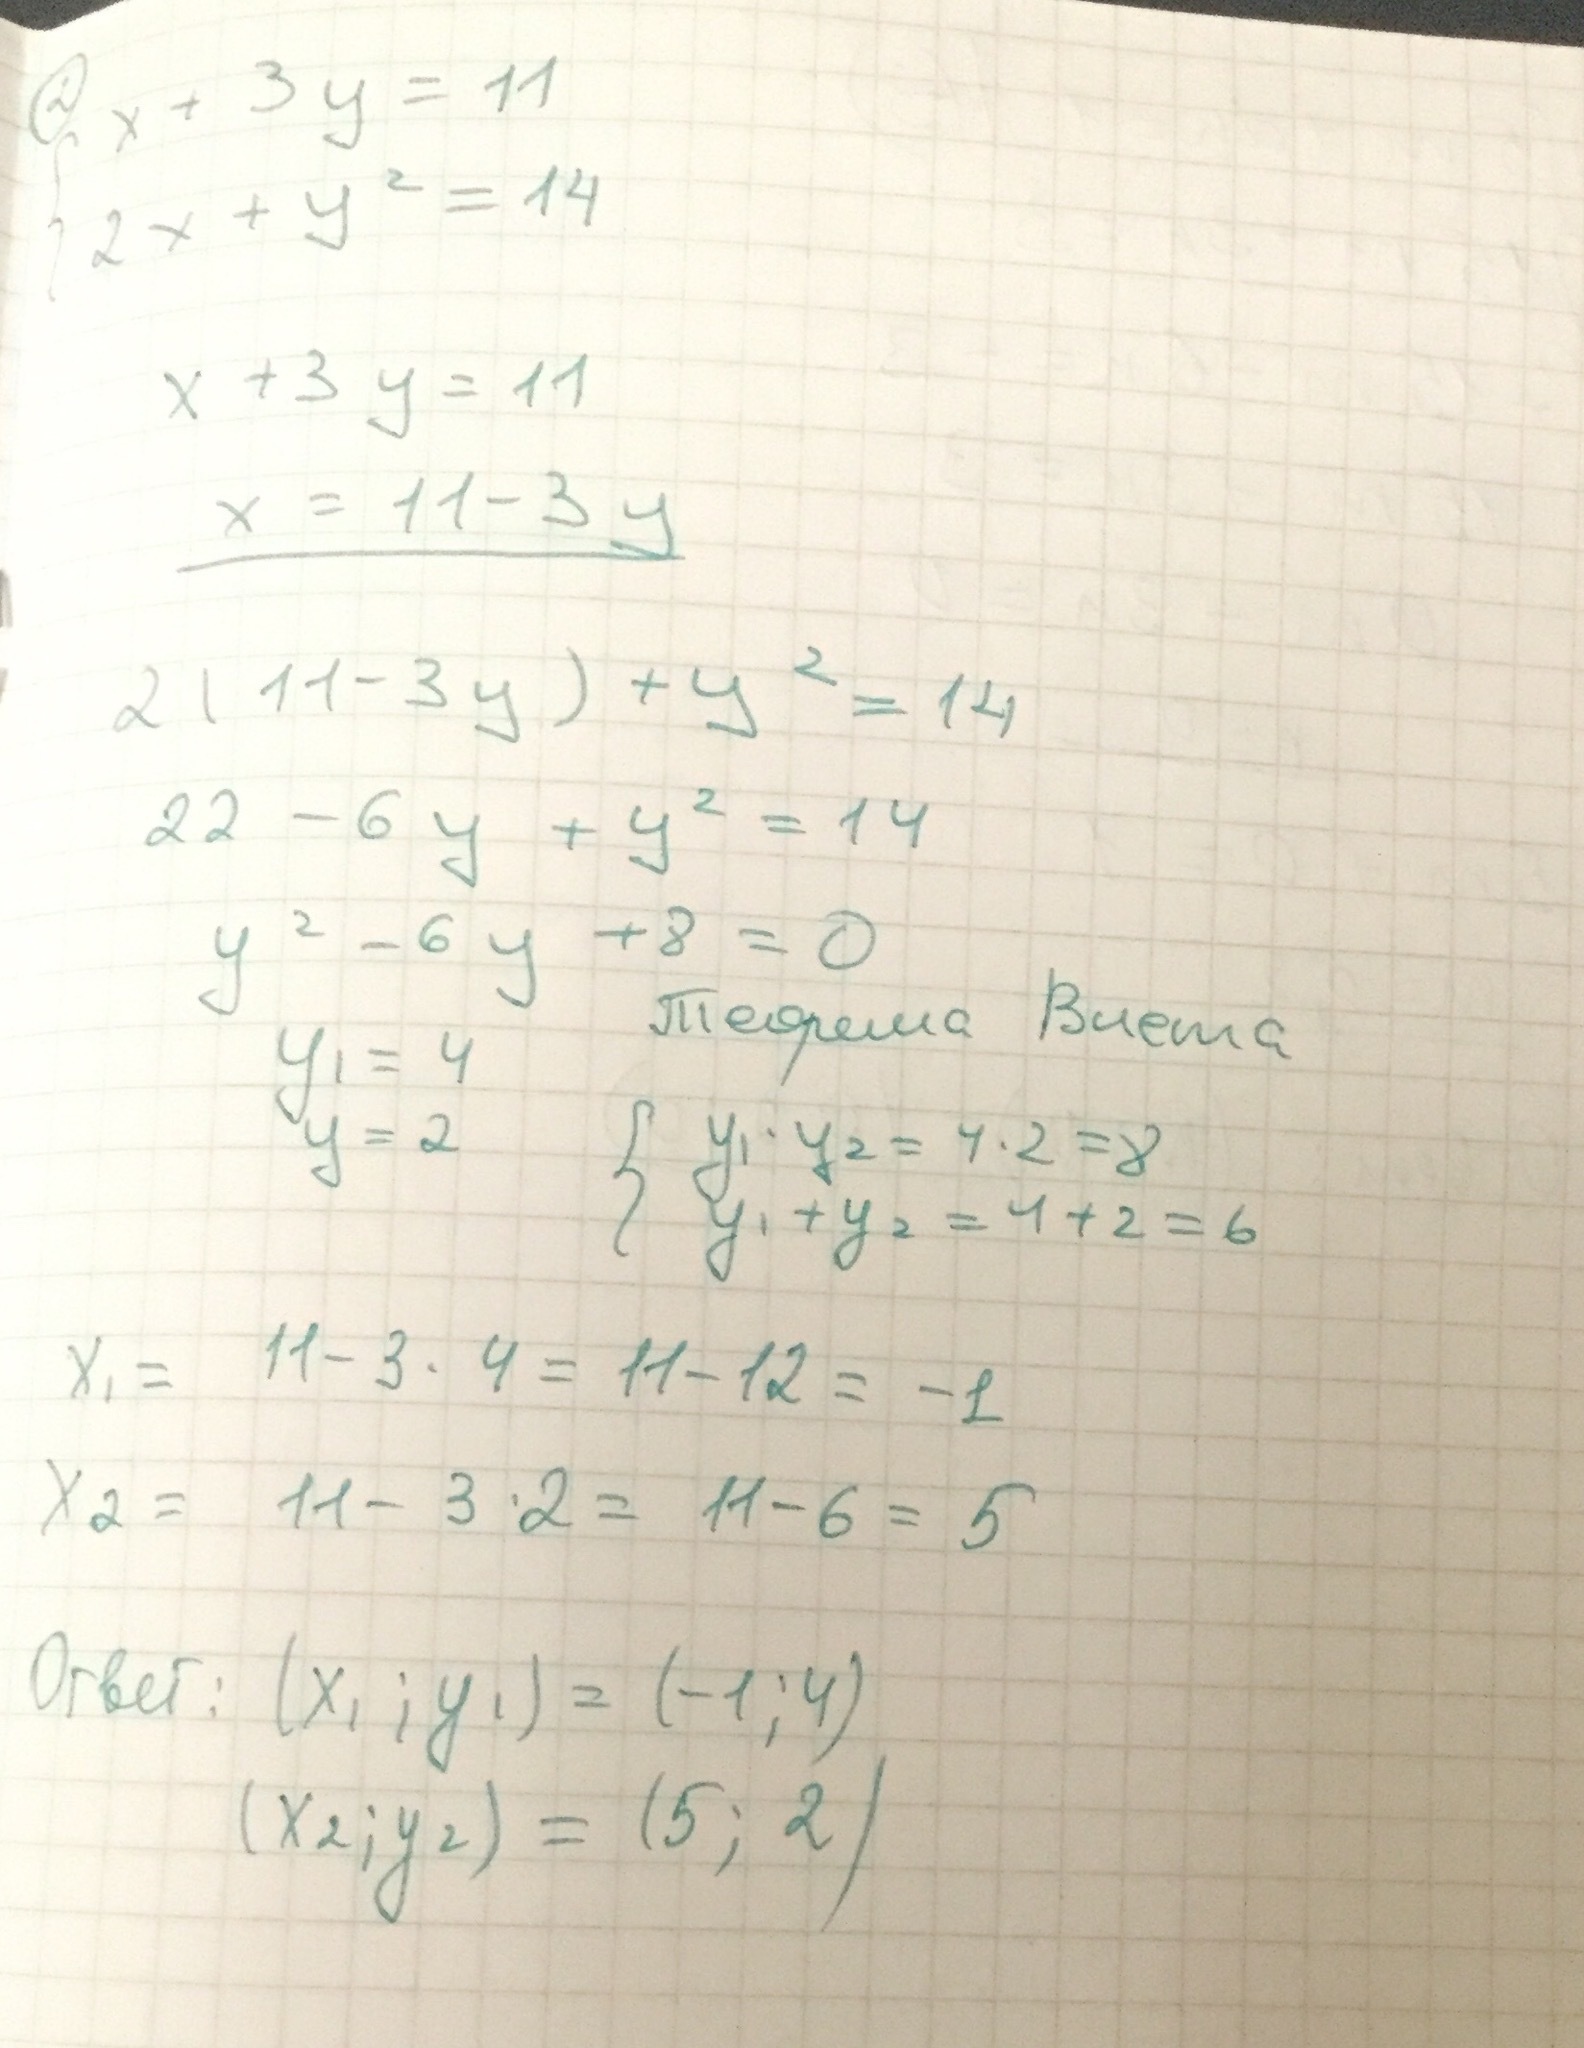 ② x + 3y = 11
{ 2x + y² = 14
x + 3y = 11
x = 11 - 3y
2(11 - 3y) + y² = 14
22 - 6y + y² = 14
y² - 6y + 8 = 0
Теорема Виета
y₁ = 4
y = 2
{ y₁ · y₂ = 4 · 2 = 8
y₁ + y₂ = 4 + 2 = 6
x₁ = 11 - 3 · 4 = 11 - 12 = -1
x₂ = 11 - 3 · 2 = 11 - 6 = 5
Ответ: (x₁; y₁) = (-1; 4)
(x₂; y₂) = (5; 2)